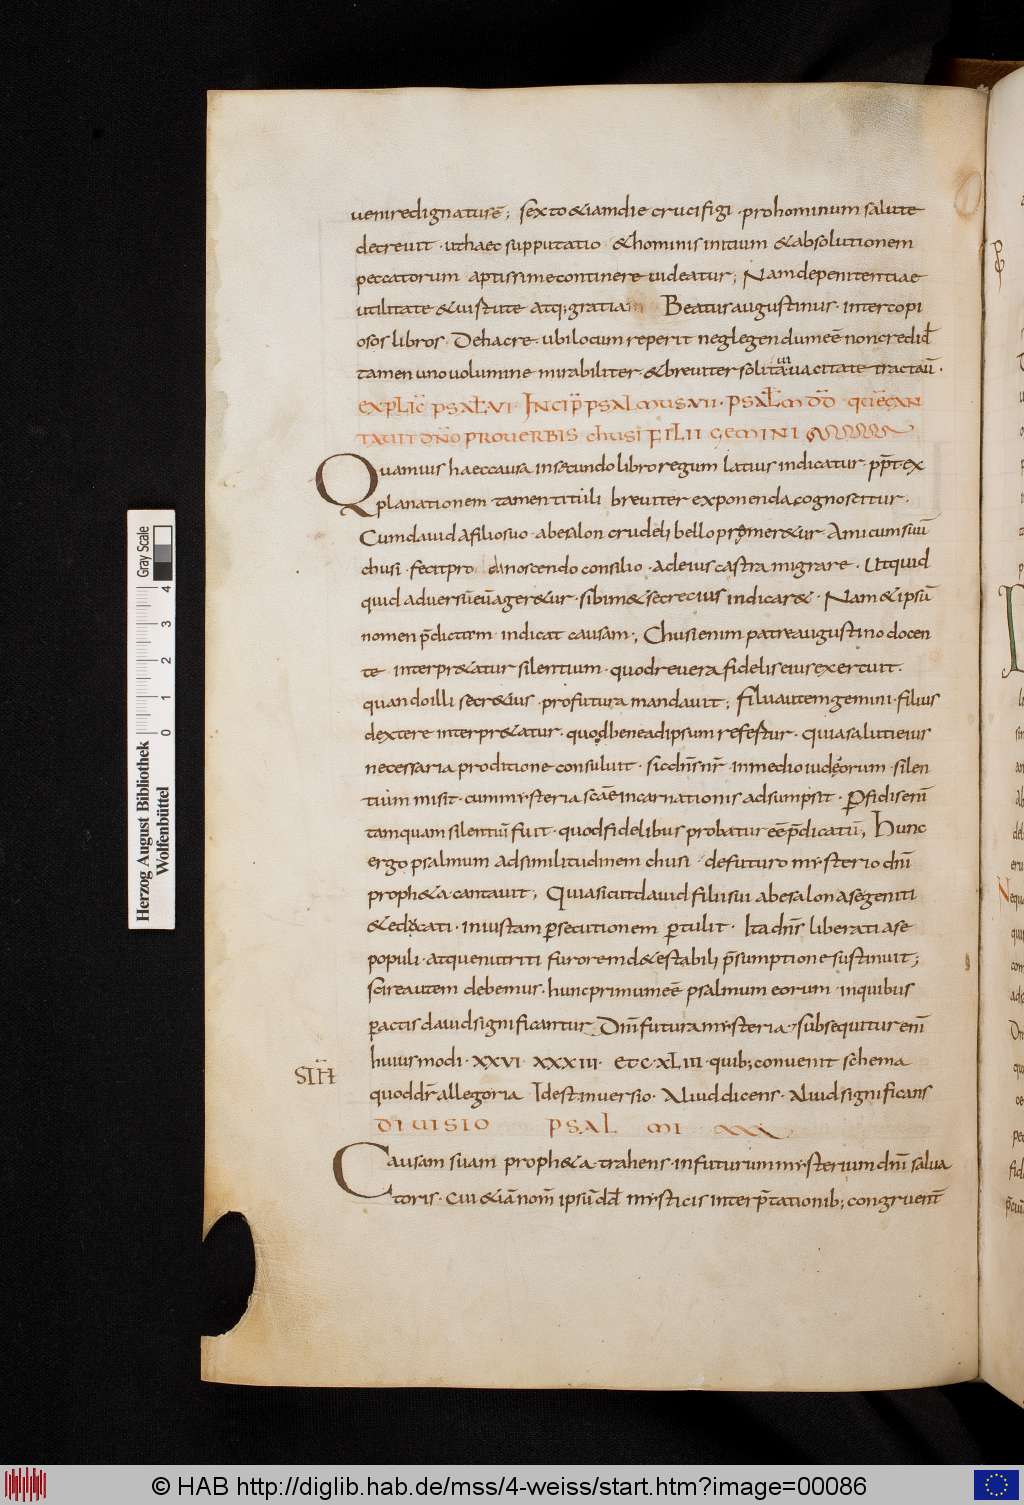 uenire dignatus ē; sexto & iam die crucifigi · pro hominum salute
decreuit · ut haec supputatio & hominis initium & absolutionem
peccatorum aptissime continere uideatur; Nam de penitentiae
utilitate & uirtute atq; gratiam Beatus augustinus · inter copi
osos libros · De hac re · ubi locum reperit neglegendum eē non credid̄
tamen uno uolumine mirabiliter · & breuiter solita uiuacitate tractau̅ ·
EXPLIC̄ PSAL̄ · VI · INCIP̄ PSALMUS · VII · PSAL̄M DD̄ · QUĒ CAN
TAUIT DN̄O PRO UERBIS chusi FILII GEMINI
Quamuis haec causa in secundo libro regum latius indicatur · pp̄t ex
planationem tamen tituli breuiter exponenda cognoscitur ·
Cum dauid a filio suo · abesalon crudeli bello premer&ur Amicum suū
chusi · fecit pro noscendo consilio · ad eius castra migrare · Ut quid
quid aduersū eū ager&ur · sibi m& secrecius indicar& · Nam & ipsū
nomen p̄dictum · indicat causam; Chusi enim patre augustino docen
te · interpr&atur silentium · quod reuera fidelis eius exercuit ·
quando illi secr&ius · profutura mandauit; filii autem gemini · filius
dextere interpr&atur · quod bene ad ipsum refertur · Quia saluti eius
necessaria proditione consuluit · sic dn̄s nr̄ · in medio iudęorum · silen
tium misit · cum mysteria scāe incarnationis adsumpsit · Perfidis enī
tamquam silentiū fuit · quod fidelibus probatur eē p̄dicatū; Hunc
ergo psalmum ad similitudinem chusi · de futuro mysterio dn̄i
proph&a cantauit; Quia sicut dauid filii sui abesalon a se geniti
& educati · iniustam p̱secutionem p̱tulit · Ita dn̄s liberati a se
populi · atque nutriti furorem d&estabili p̄sumptione sustinuit;
scire autem debemus · hunc primum eē psalmum eorum · in quibus
p̱ actis dauid significantur Dn̄i futura mysteria · subsequitur enī
huiusmodi · XXVI · XXXIII · ETC · XLIII · quib; conuenit schema
quod dr̄ allegoria Id est inuersio · Aliud dicens · Aliud significans
DIUISIO PSALMI
Causam suam proph&a trahens · in futurum mysterium dn̄i salua
toris · cui & iā nom̄ ipsū dd̄ mysticis interp̄tationib; congruen̄t
Herzog August Bibliothek
Wolfenbüttel
0 1 2 3 4
Gray Scale
© HAB http://diglib.hab.de/mss/4-weiss/start.htm?image=00086